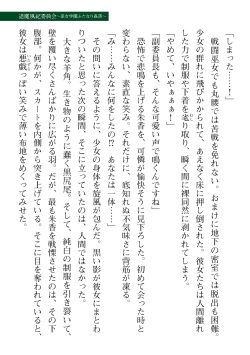 退魔風紀委員会～巫女学園ふたなり姦落～
「しまった……！」
戦闘巫女でも丸腰では苦戦を免れない。おまけに地下の密室では脱出も困難。
少女の群れに飛びかかられて、あえなく床に押し倒された。彼女たちは人間離れ
した力で制服や下着を毟り取り、瞬く間に裸同然に剥かれてしまう。
「やめて、いやぁぁぁ！」
「副委員長も、そんな可愛い声で鳴くんですね」
恐怖で悲鳴を上げる朱香を、可憐が愉快そうに見下ろした。初めて会った時と
変わらない、素直な笑み。それだけに、底知れぬ不気味さに背筋が凍る。
「み……みんなに何をしたの!?　あなたは一体……」
その問いに答えるように、少女の身体を旋風が包んだ。黒い影が彼女にまとわ
りついたと思った次の瞬間、そこに立っていたのは、人間ではなかった。
大きな羊角。生き物のように蠢く黒尻尾。そして、純白の制服を引き裂いて、
壁を覆いつくさんばかりに広がる羽だ。だが、最も朱香を戦慄させたのは、その下
腹部。何かが、スカートを内側から突き上げている。そこに目を奪われていると、
彼女は悪戯っぽい笑みで薄い布地をめくってみせた。